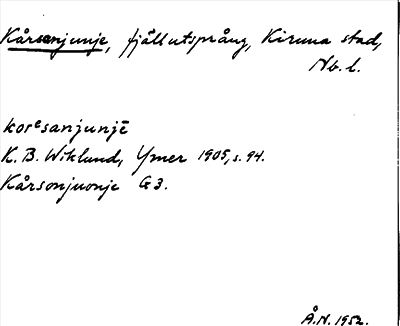 Kårsanjunje, fjällutsprång, Kiruna stad,
Nb. l.
korᵉsanjunjē
K. B. Wiklund, Ymer 1905, s. 94.
Kårsonjuonje G3.
Å.N. 1952.